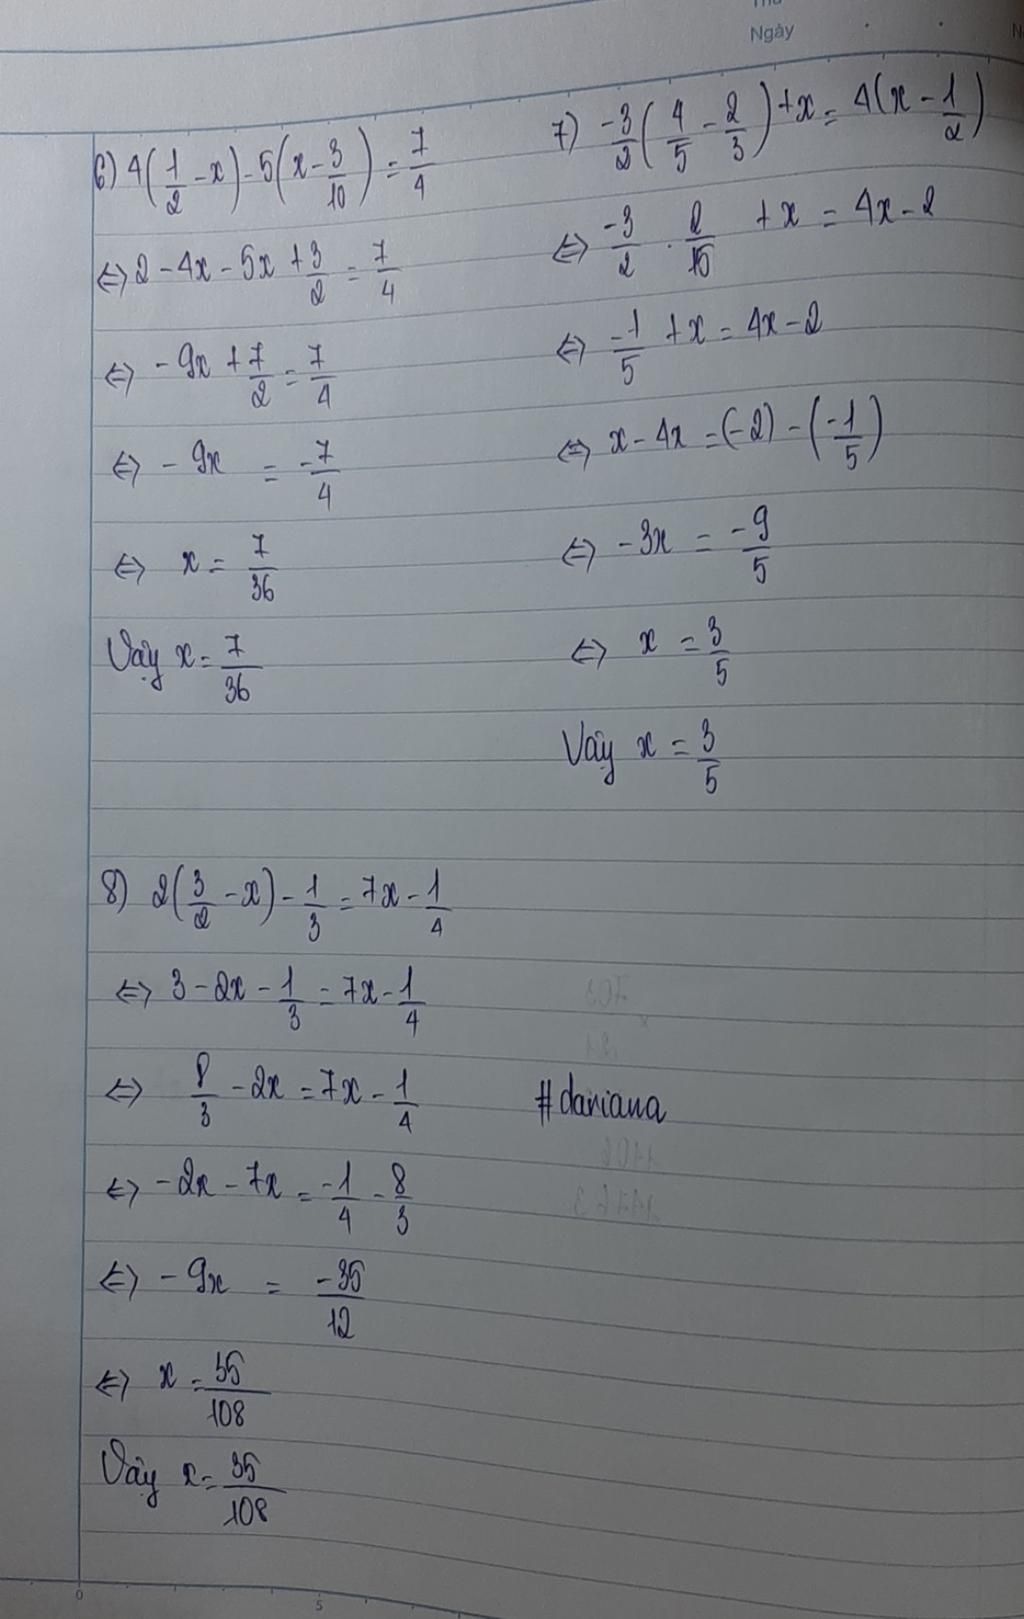 Ngày
6) 4(1/2 - x) - 5(x - 3/10) = 7/4
⇔ 2 - 4x - 5x + 3/2 = 7/4
⇔ -9x + 7/2 = 7/4
⇔ -9x = -7/4
⇔ x = 7/36
Vậy x = 7/36
7) -3/2(4/5 - 2/3) + x = 4(x - 1/2)
⇔ -3/2 . 2/15 + x = 4x - 2
⇔ -1/5 + x = 4x - 2
⇔ x - 4x = (-2) - (-1/5)
⇔ -3x = -9/5
⇔ x = 3/5
Vậy x = 3/5
8) 2(3/2 - x) - 1/3 = 7x - 1/4
⇔ 3 - 2x - 1/3 = 7x - 1/4
⇔ 8/3 - 2x = 7x - 1/4
⇔ -2x - 7x = -1/4 - 8/3
⇔ -9x = -35/12
⇔ x = 35/108
Vậy x = 35/108
#dariana
0 5